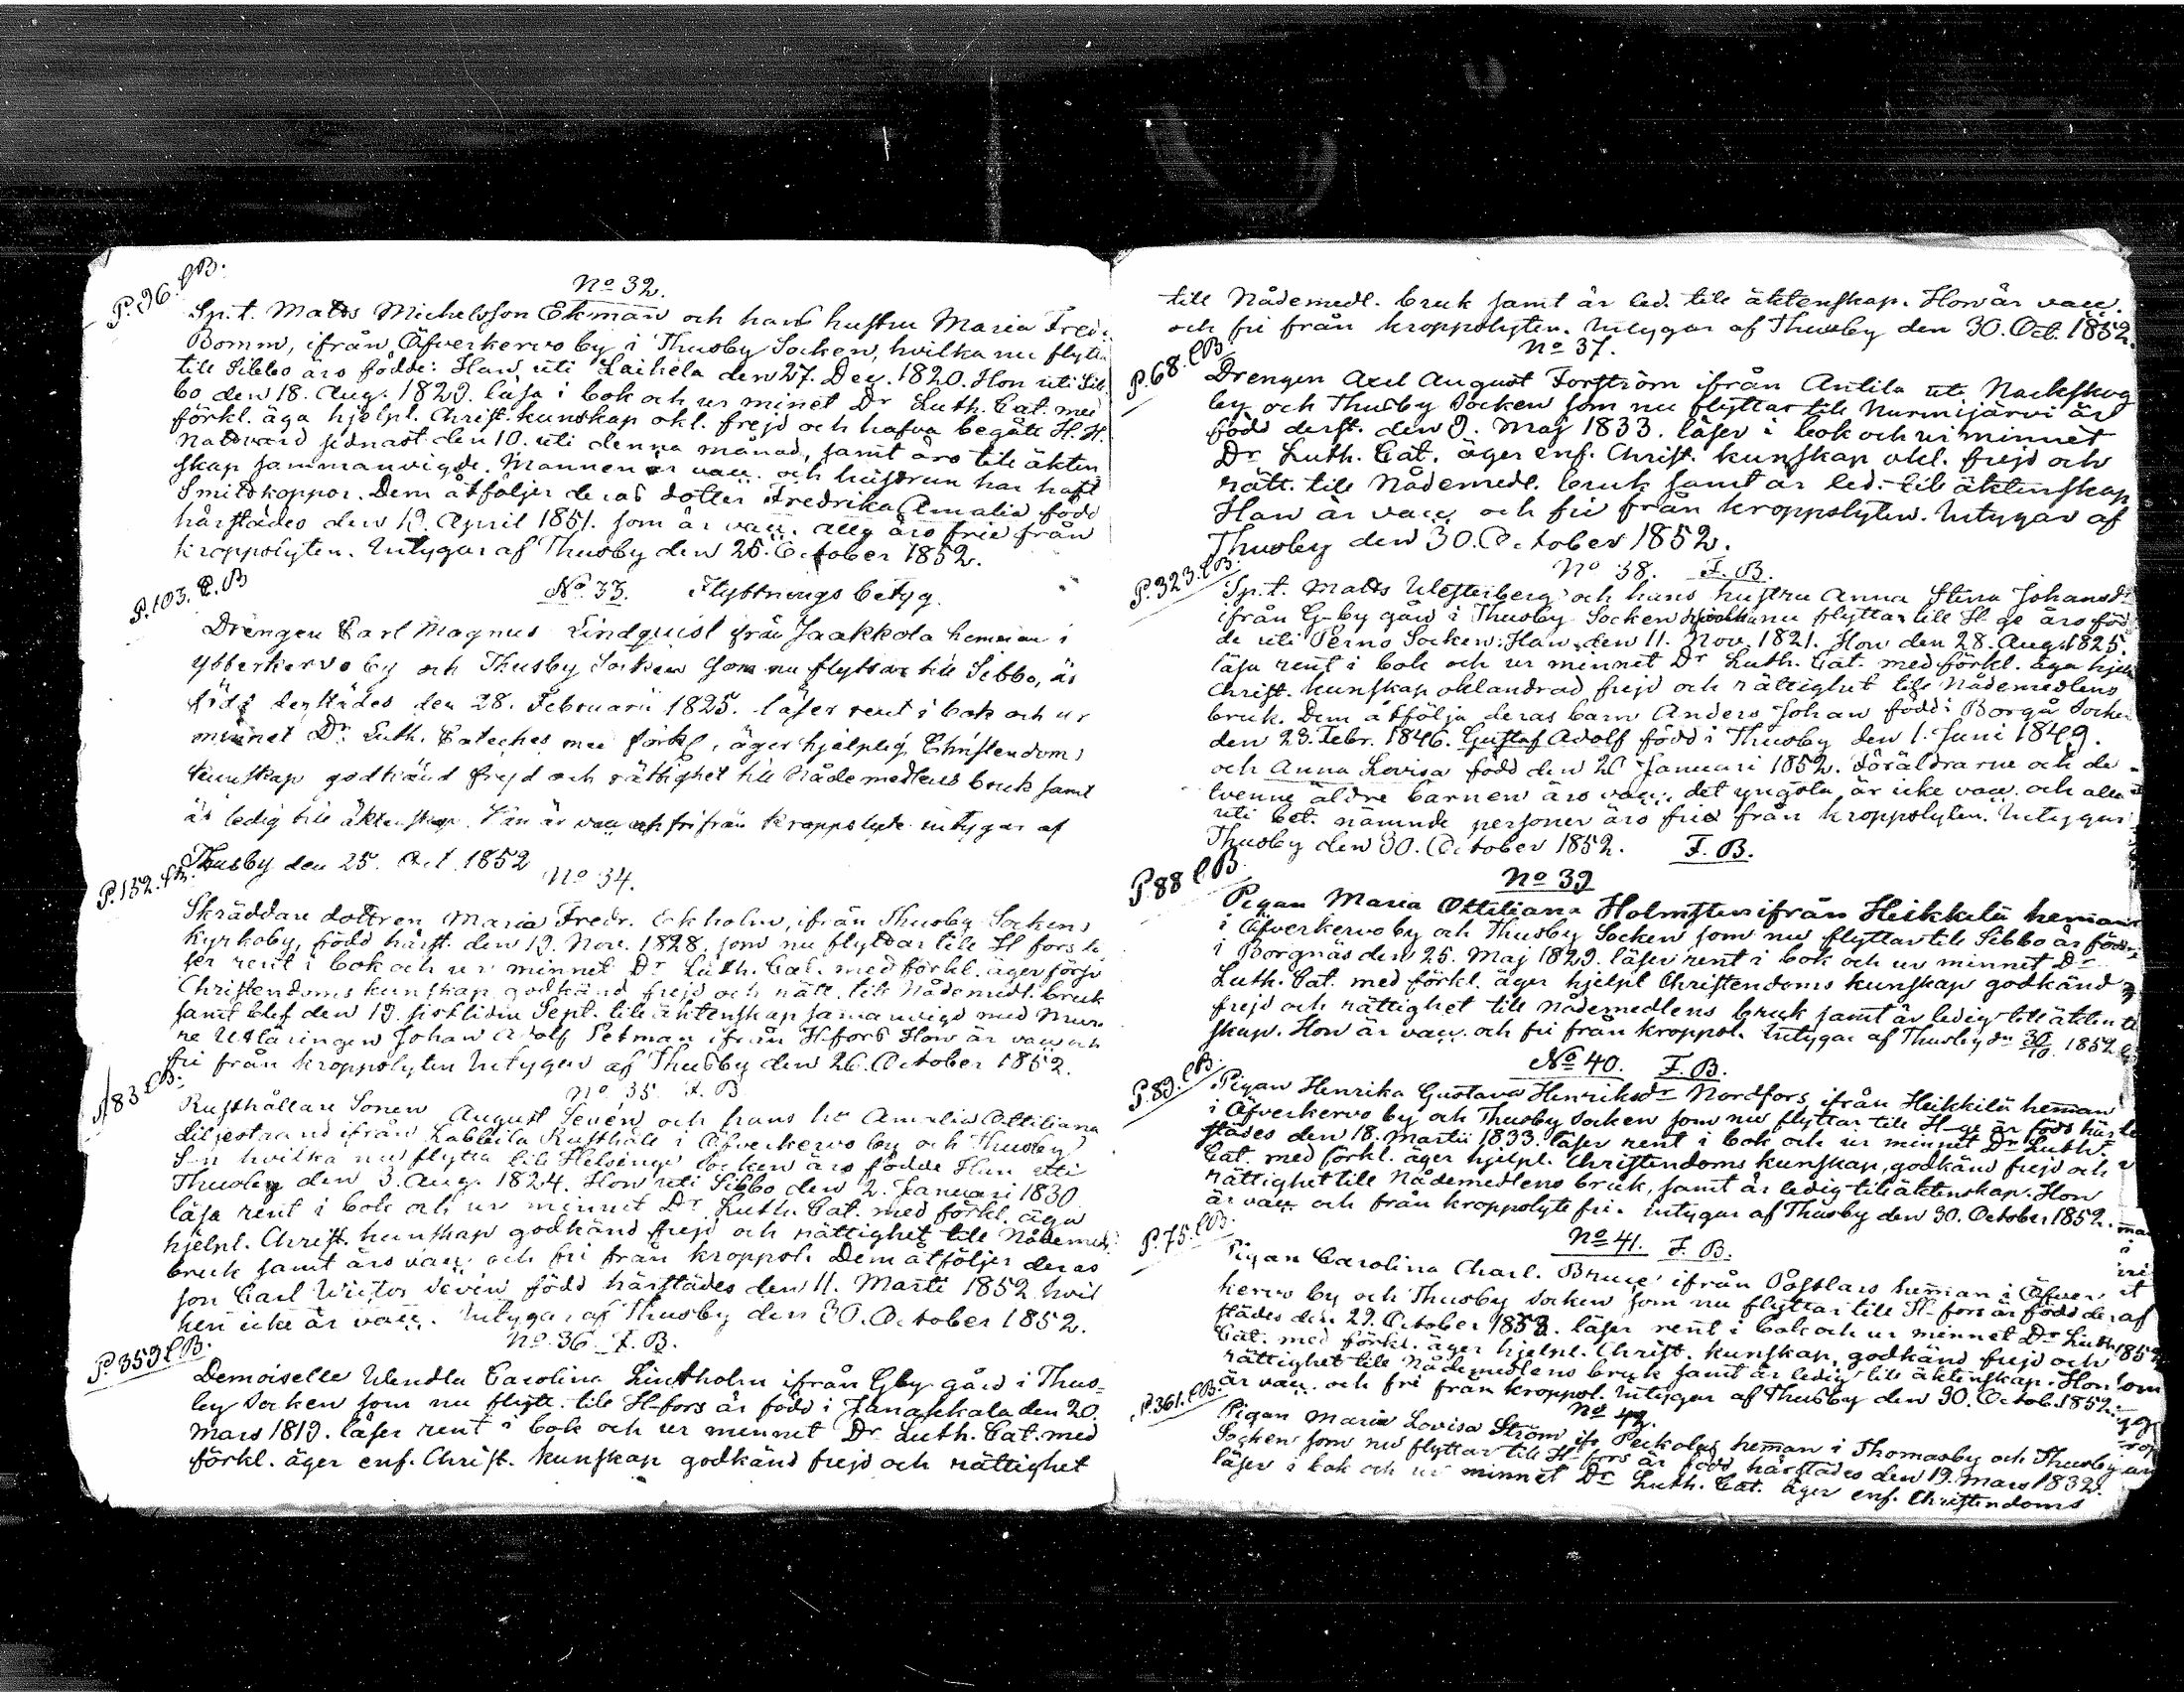 P. 96. C B.
No 32.
Sp. t. Matts Michelsson Ekman och hans hustru Maria Fred:
Bomm, ifrån Äfverkervo by i Thusby Socken, hvilka nu flytta
till Sibbo äro födde: Han uti Laihela den 27. Dec. 1820. Hon uti Sib
bo den 18. Aug. 1829. läsa i bok och ur minnet Dr Luth. Cat. med
förkl. äga hjelpl. Christ. kunskap okl. frejd och hafva begått H. H.
Nattvard sednast den 10. uti denna månad, samt äro till äkten
skap sammanvigde. Mannen är vacc. och hustrun har haft
Smittkoppor. Dem åtföljer deras dotter Fredrika Amalia född
härstädes den 19. April 1851. som är vacc. alla äro frie från
kroppslyten. Intygar af Thusby den 25. October 1852.
P. 103. C. B
No 33. Flyttnings betyg.
Drengen Carl Magnus Lindquist från Jaakkola hemman i
Ytterkervo by och Thusby Socken som nu flyttar till Sibbo, är
född derstädes den 28. Februarii 1825. läser rent i bok och ur
minnet Dr. Luth. Cateches med förkl, äger hjelplig Christendoms
kunskap godkänd frejd och rättighet till Nådemedlens bruk samt
är ledig till äktenskap. Han är vacc och fri från kroppslyte intygar af
Thusby den 25. Oct. 1852
P. 152.
No 34.
Skräddare dottren Maria Fredr. Ekholm, ifrån Thusby Sockens
Kyrkoby, född härst. den 19. Nov. 1828. som nu flyttar till H fors lä
ser rent i bok och ur minnet Dr Luth. Cat. med förkl. äger försv.
Christendoms kunskap godkänd frejd och rätt. till Nådemedl. bruk
samt blef den 19. sistliden Sept. till äktenskap samanvigd med Mur.
re Utläringen Johan Adolf Petman ifrån H-fors Hon är vacc och
fri från kroppslyten Intygar af Thusby den 26. October 1852.
183 C B.
No 35. F. B
Rusthållare Sonen August Sevén och hans hu Amalia Ottiliana
Liljestrand ifrån Labbila Rusthåll i Äfverkervo by och Thusby
S-n hvilka nu flytta till Helsinge Socken äro födde Han uti
Thusby den 3. Aug. 1824. Hon uti Sibbo den 2. Januari 1830.
läsa rent i bok och ur minnet Dr. Luth. Cat. med förkl. äga
hjelpl. Christ. kunskap godkänd frejd och rättighet till Nådemed.
bruk samt äro vacc. och fri från kroppsl. Dem åtföljer deras
son Carl Victor Sevén född härstädes den 11. Marti 1852. hvil
ken icke är vacc. Intygar af Thusby den 30. October 1852.
No 36. F. B.
P. 359 C B.
Demoiselle Wendla Carolina Lindholm ifrån Gby gård i Thus=
by Socken som nu flytt. till H-fors är född i Janakkala den 20.
Mars 1819. läser rent i bok och ur minnet Dr Luth. Cat. med
förkl. äger enf. Christ. kunskap godkänd frejd och rättighet
till Nådemedl. bruk samt är led. till äktenskap. Hon är vacc.
och fri från kroppslyten. Intygar af Thusby den 30. Oct. 1852.
No 37.
P. 68. C B.
Drengen Axel August Forström ifrån Antila uti Nackskog
by och Thusby Socken som nu flyttar till Nurmijärvi är
född derst. den 9. Maj 1833. läser i bok och ur minnet
Dr Luth. Cat. äger enf. Christ. kunskap okl. frejd och
rätt. till Nådemedl. bruk samt är led. till äktenskap
Han är vacc. och fri från kroppslyten. Intygar af
Thusby den 30. October 1852.
P. 323. C B.
No 38. F. B.
Sp. t. Matts Westerberg och hans hustru Anna Stina Johansdr
ifrån G-by gård i Thusby Socken hvilka nu flyttar till H-ge äro föd
de uti Perno Socken: Han den 11. Nov. 1821. Hon den 28. Aug. 1825.
läsa rent i bok och ur minnet Dr Luth. Cat. med förkl. äga hjelp
Christ. kunskap oklandrad frejd och rättighet till Nådemedlens
bruk. Dem åtfölja deras barn Anders Johan född i Borgå Socken
den 23. Febr. 1846. Gustaf Adolf född i Thusby den 1. Juni 1849.
och Anna Lovisa född den 26 Januari 1852. Föräldrarne och de
tvenne äldre barnen äro vacc. det yngsta är icke vacc. och alla
uti bet. nämnde personer äro fria från kroppslyten. Intygar
Thusby den 30. October 1852. F. B.
P. 88 C B.
No 39
Pigan Maria Ottiliana Holmsten ifrån Heikkilä heman
i Äfverkervo by och Thusby Socken som nu flyttar till Sibbo är född
i Borgnäs den 25. Maj 1829. läser rent i bok och ur minnet Dr
Luth. Cat. med förkl. äger hjelpl Christendoms kunskap godkänd
frejd och rättighet till Nådemedlens bruk samt är ledig till äkten
skap. Hon är vacc. och fri från kroppsl. Intygar af Thusby dn 30/10. 1852
No 40. F. B.
P. 89. C B.
Pigan Henrika Gustava Henriksdr Nordfors ifrån Heikkilä heman
i Äfverkervo by och Thusby Socken som nu flyttar till H-ge är född här
städes den 18. Martii 1833. läser rent i bok och ur minnet Dr Luth.
Cat. med förkl. äger hjelpl. Christendoms kunskap, godkänd frejd och
rättighet till Nådemedlens bruk, samt är ledig till äktenskap. Hon
är vacc. och från kroppslyte fri. Intygar af Thusby den 30. October 1852.
P. 75. C B.
No 41. F. B.
Pigan Carolina Charl. Bruce ifrån Påstlars heman i Äfver
kervo by och Thusby Socken som nu flyttar till H-fors är född der
städes den 29. October 1833. läser rent i bok och ur minnet Dr Luth.
Cat. med förkl. äger hjelpl. Christ. kunskap, godkänd frejd och
rättighet till Nådemedlens bruk samt är ledig till äktenskap. Hon
är vacc. och fri från kroppsl. Intygar af Thusby den 30. Octob. 1852.
P. 361. C B.
No 42.
Pigan Maria Lovisa Ström ifr. Peckolas heman i Thomasby och Thusby
Socken som nu flyttar till H-fors är född härstädes den 19. Mars 1832.
läser i bok och ur minnet Dr Luth. Cat. äger enf. Christendoms